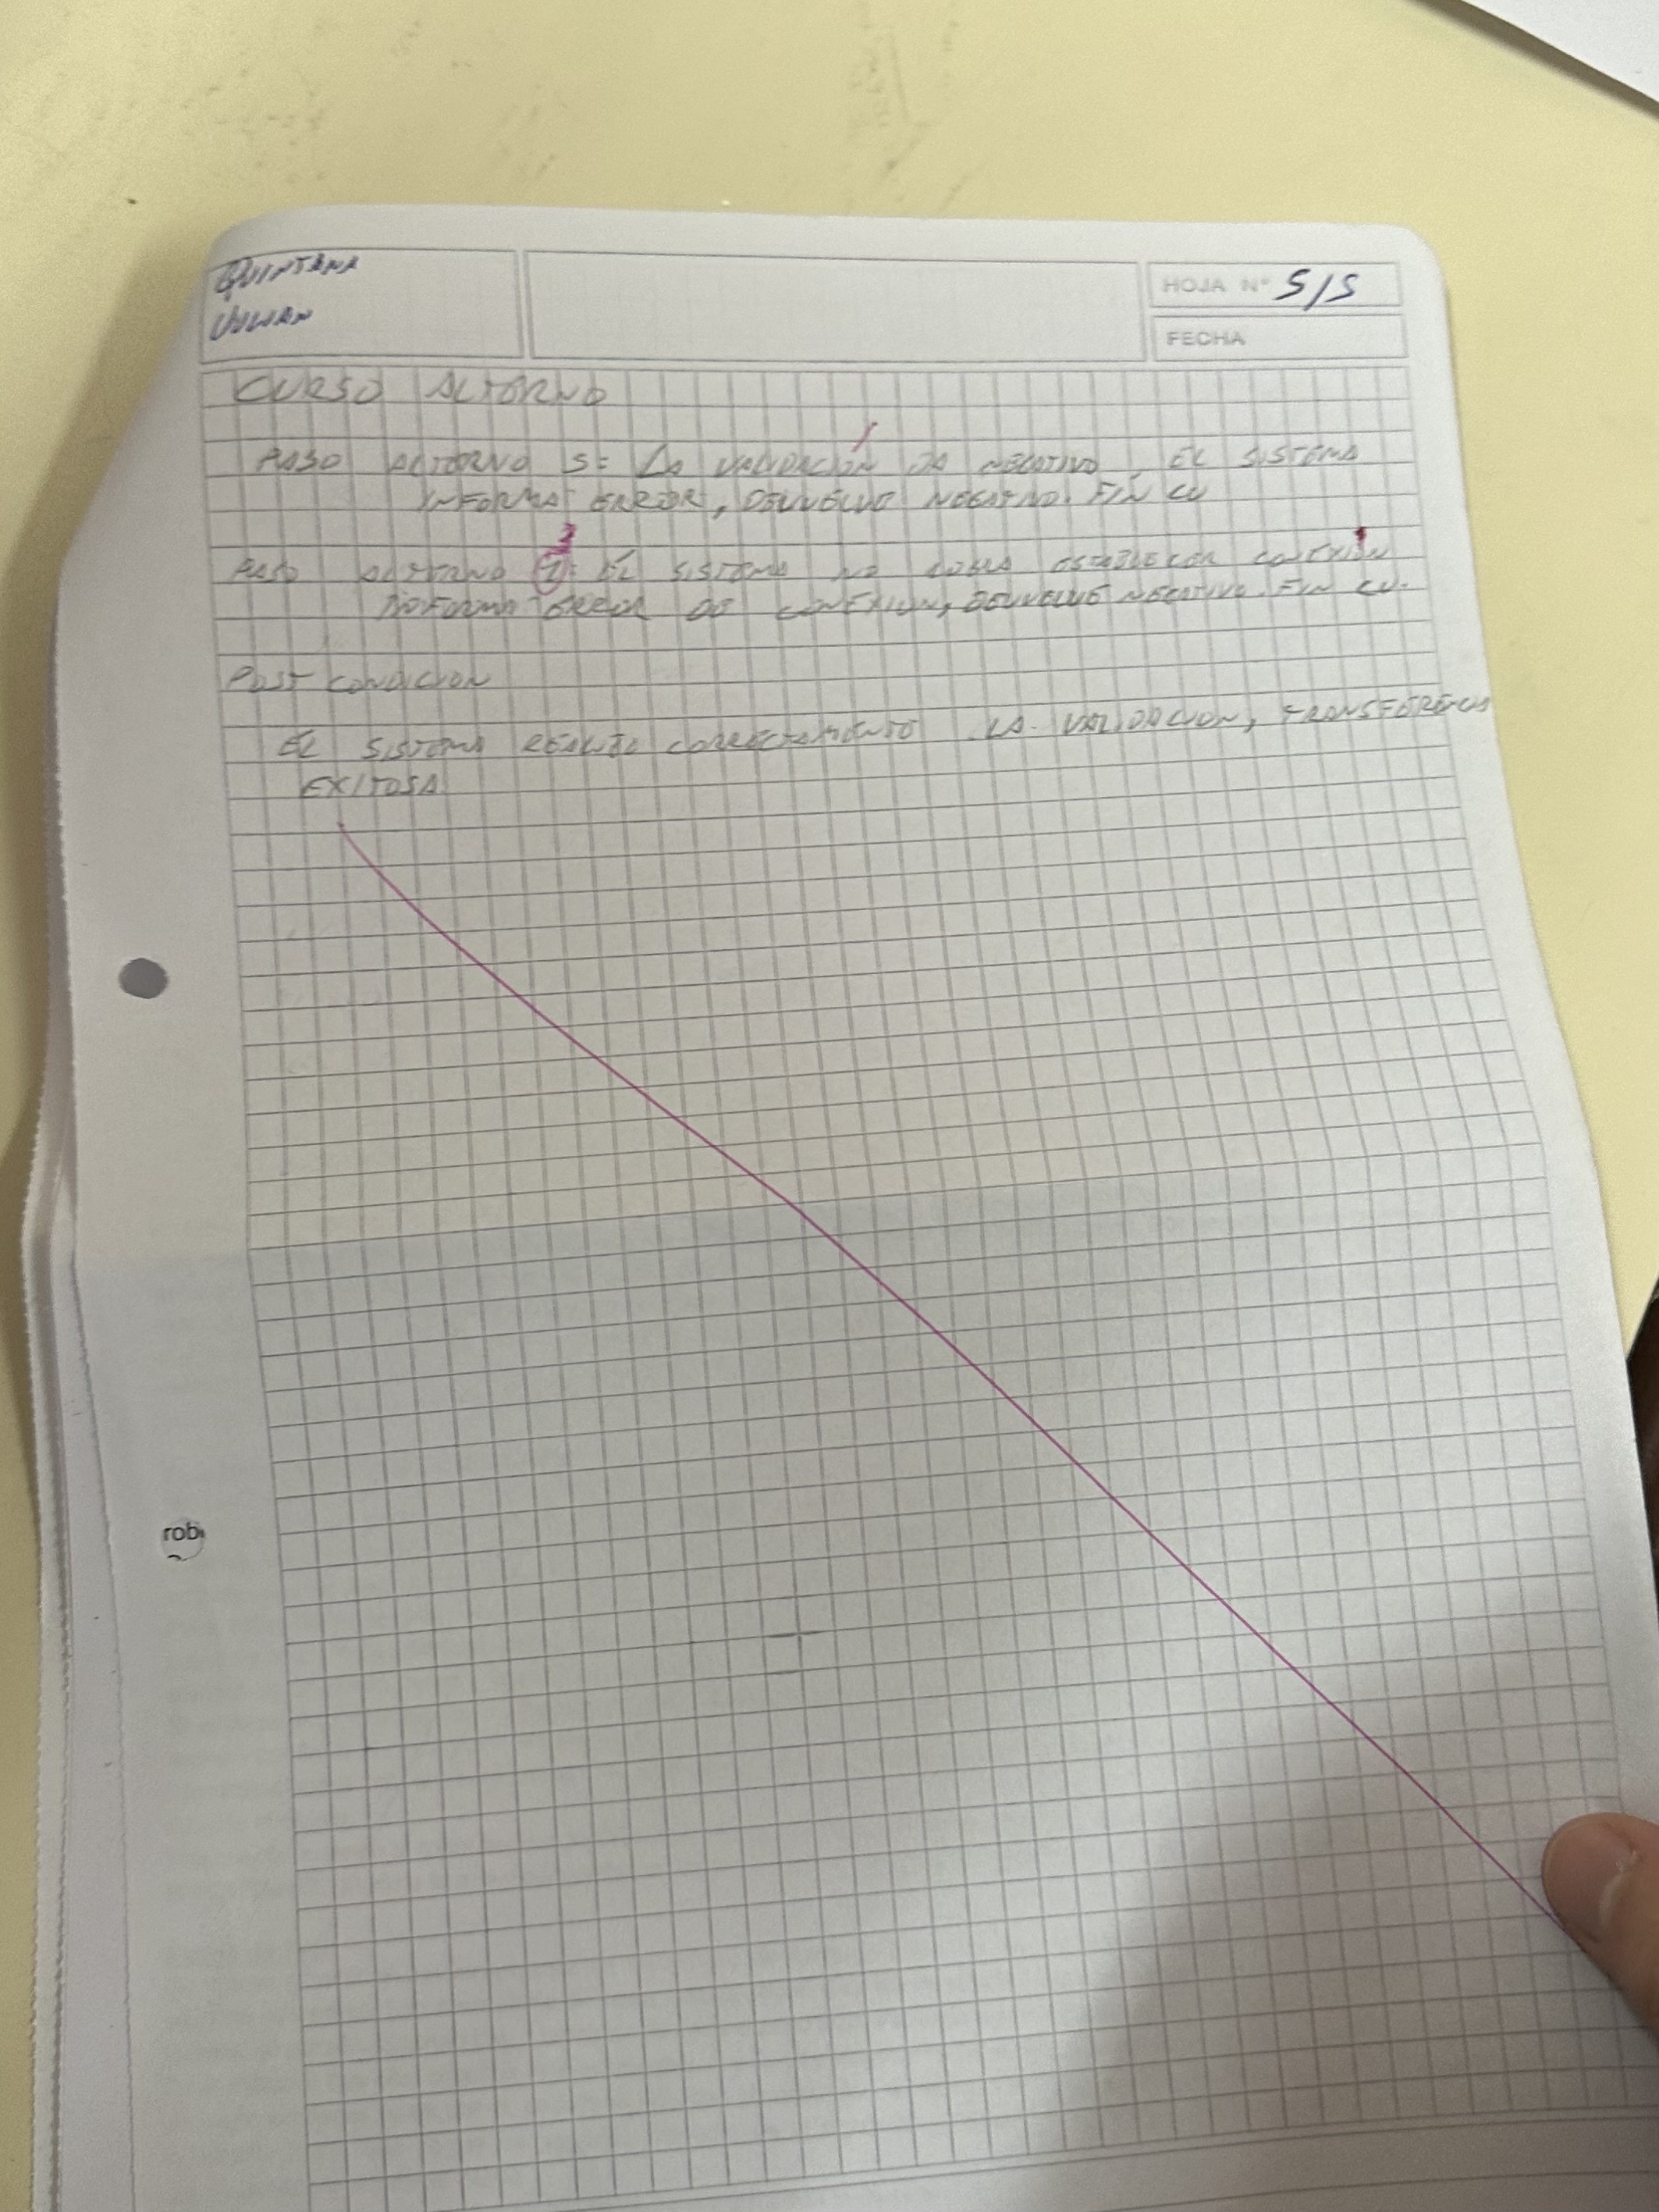 QUINTANA
JULIAN
HOJA N° 5/5
FECHA
CURSO ALTERNO
PASO ALTERNO 5: LA VALIDACIÓN DA NEGATIVO, EL SISTEMA
INFORMA ERROR, DEVUELVE NEGATIVO. FIN CU
3
PASO ALTERNO 1: EL SISTEMA NO LOGRA ESTABLECER CONEXIÓN
INFORMA ERROR DE CONEXION, DEVUELVE NEGATIVO. FIN CU.
POST CONDICION
EL SISTEMA REALIZO CORRECTAMENTE LA VALIDACION, TRANSFERENCIA
EXITOSA
rob